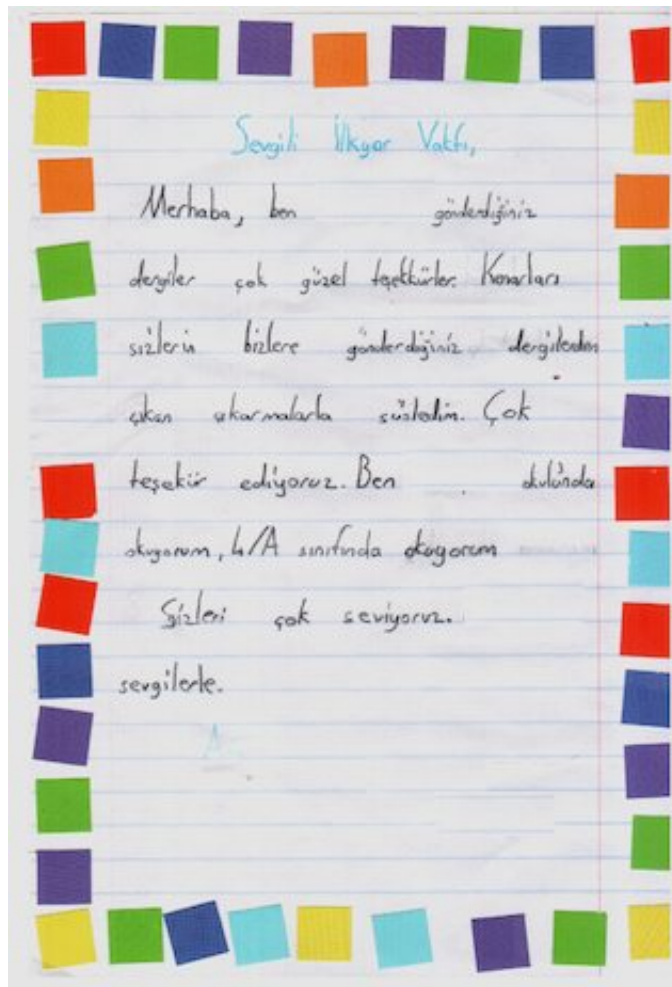 Sevgili İlkyar Vakfı,
Merhaba, ben gönderdiğiniz
dergiler çok güzel teşekkürler. Kenarları
sizlerin bizlere gönderdiğiniz dergilerden
çıkan çıkarmalarla süsledim. Çok
teşekür ediyoruz. Ben okulunda
okuyorum, 4/A sınıfında okuyorum
Sizleri çok seviyoruz.
sevgilerle.
A